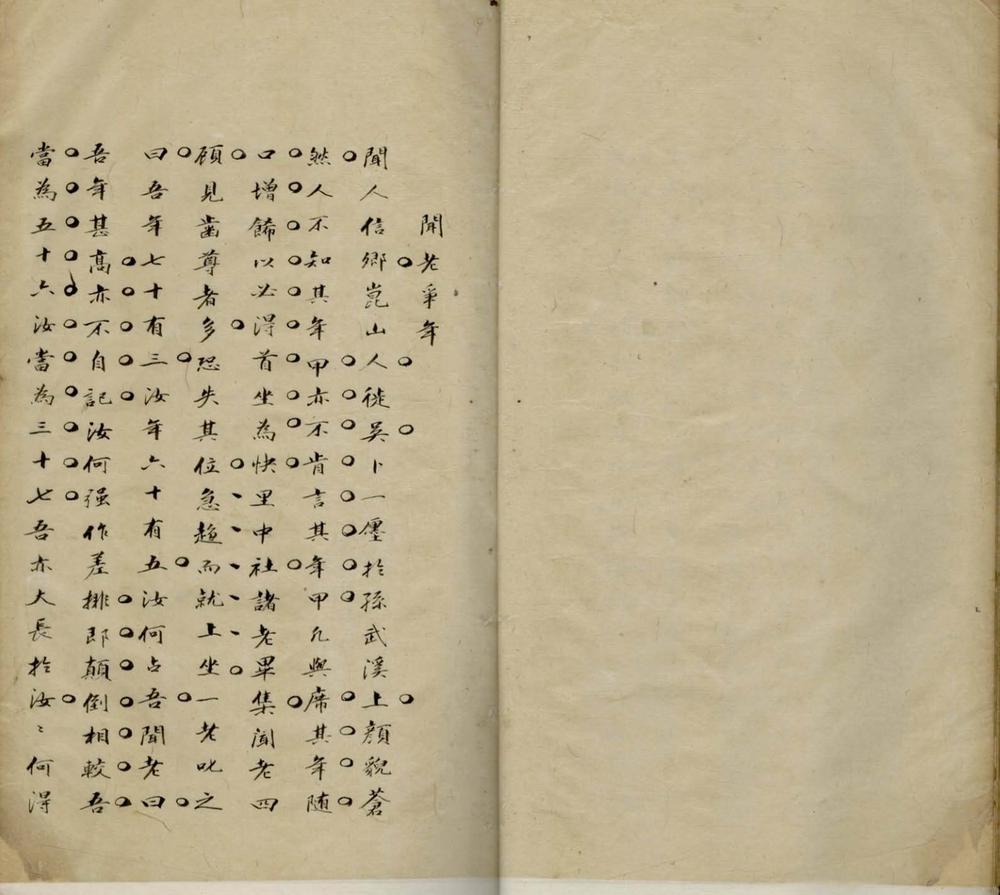 聞老爭年
聞人信鄉崑山人徙吳卜一廛於孫武溪上顏貌蒼
然人不知其年甲亦不肯言其年甲凡與席其年随
口增餙以必得首坐為快里中社諸老畢集聞老四
顧見齒尊者多恐失其位急趨而就上坐一老叱之
曰吾年七十有三汝年六十有五汝何占吾聞老曰
吾年甚髙亦不自記汝何强作差排即顛倒相較吾
當為五十六汝當為三十七吾亦大長於汝〻何得